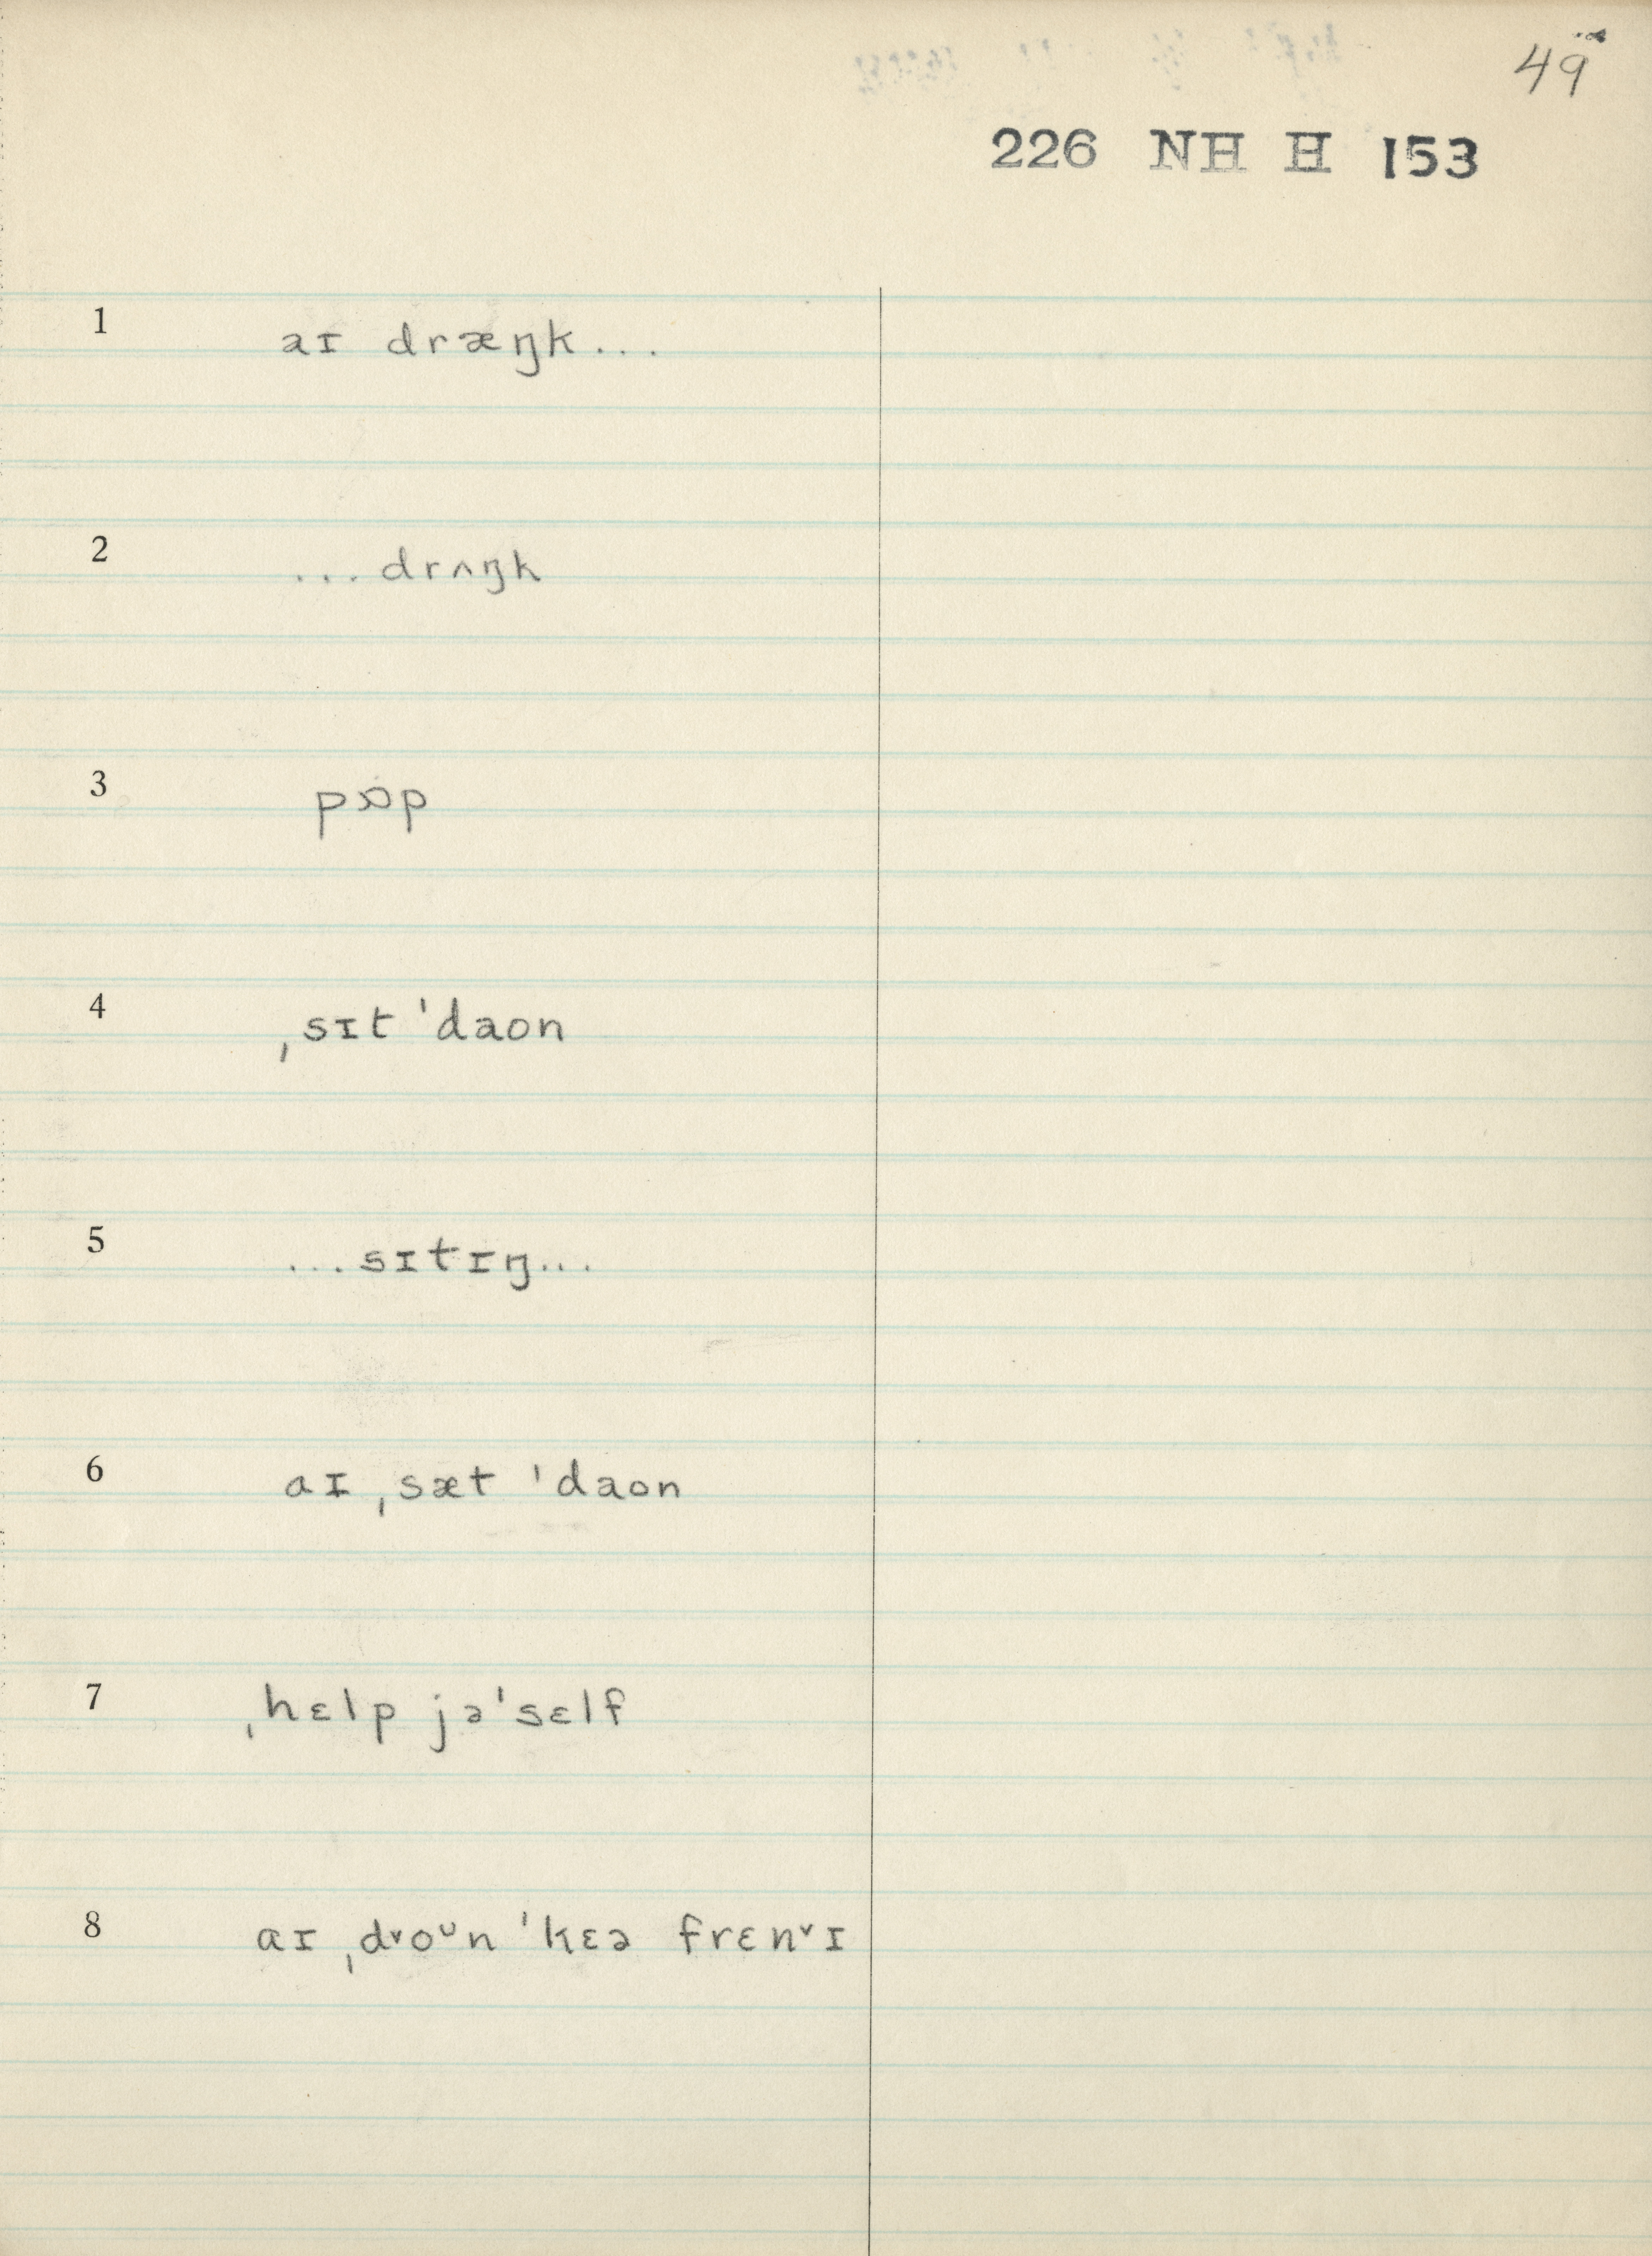 49
226 NH H 153
1 aɪ dræŋk...
2 ...drʌŋk
3 pɒp
4 ˌsɪt ˈdaon
5 ...sɪtɪŋ...
6 aɪ ˌsæt ˈdaon
7 ˌhɛlp jəˈsɛlf
8 aɪ ˌdᵛoᵁn ˈkɛə frɛnᵛɪ